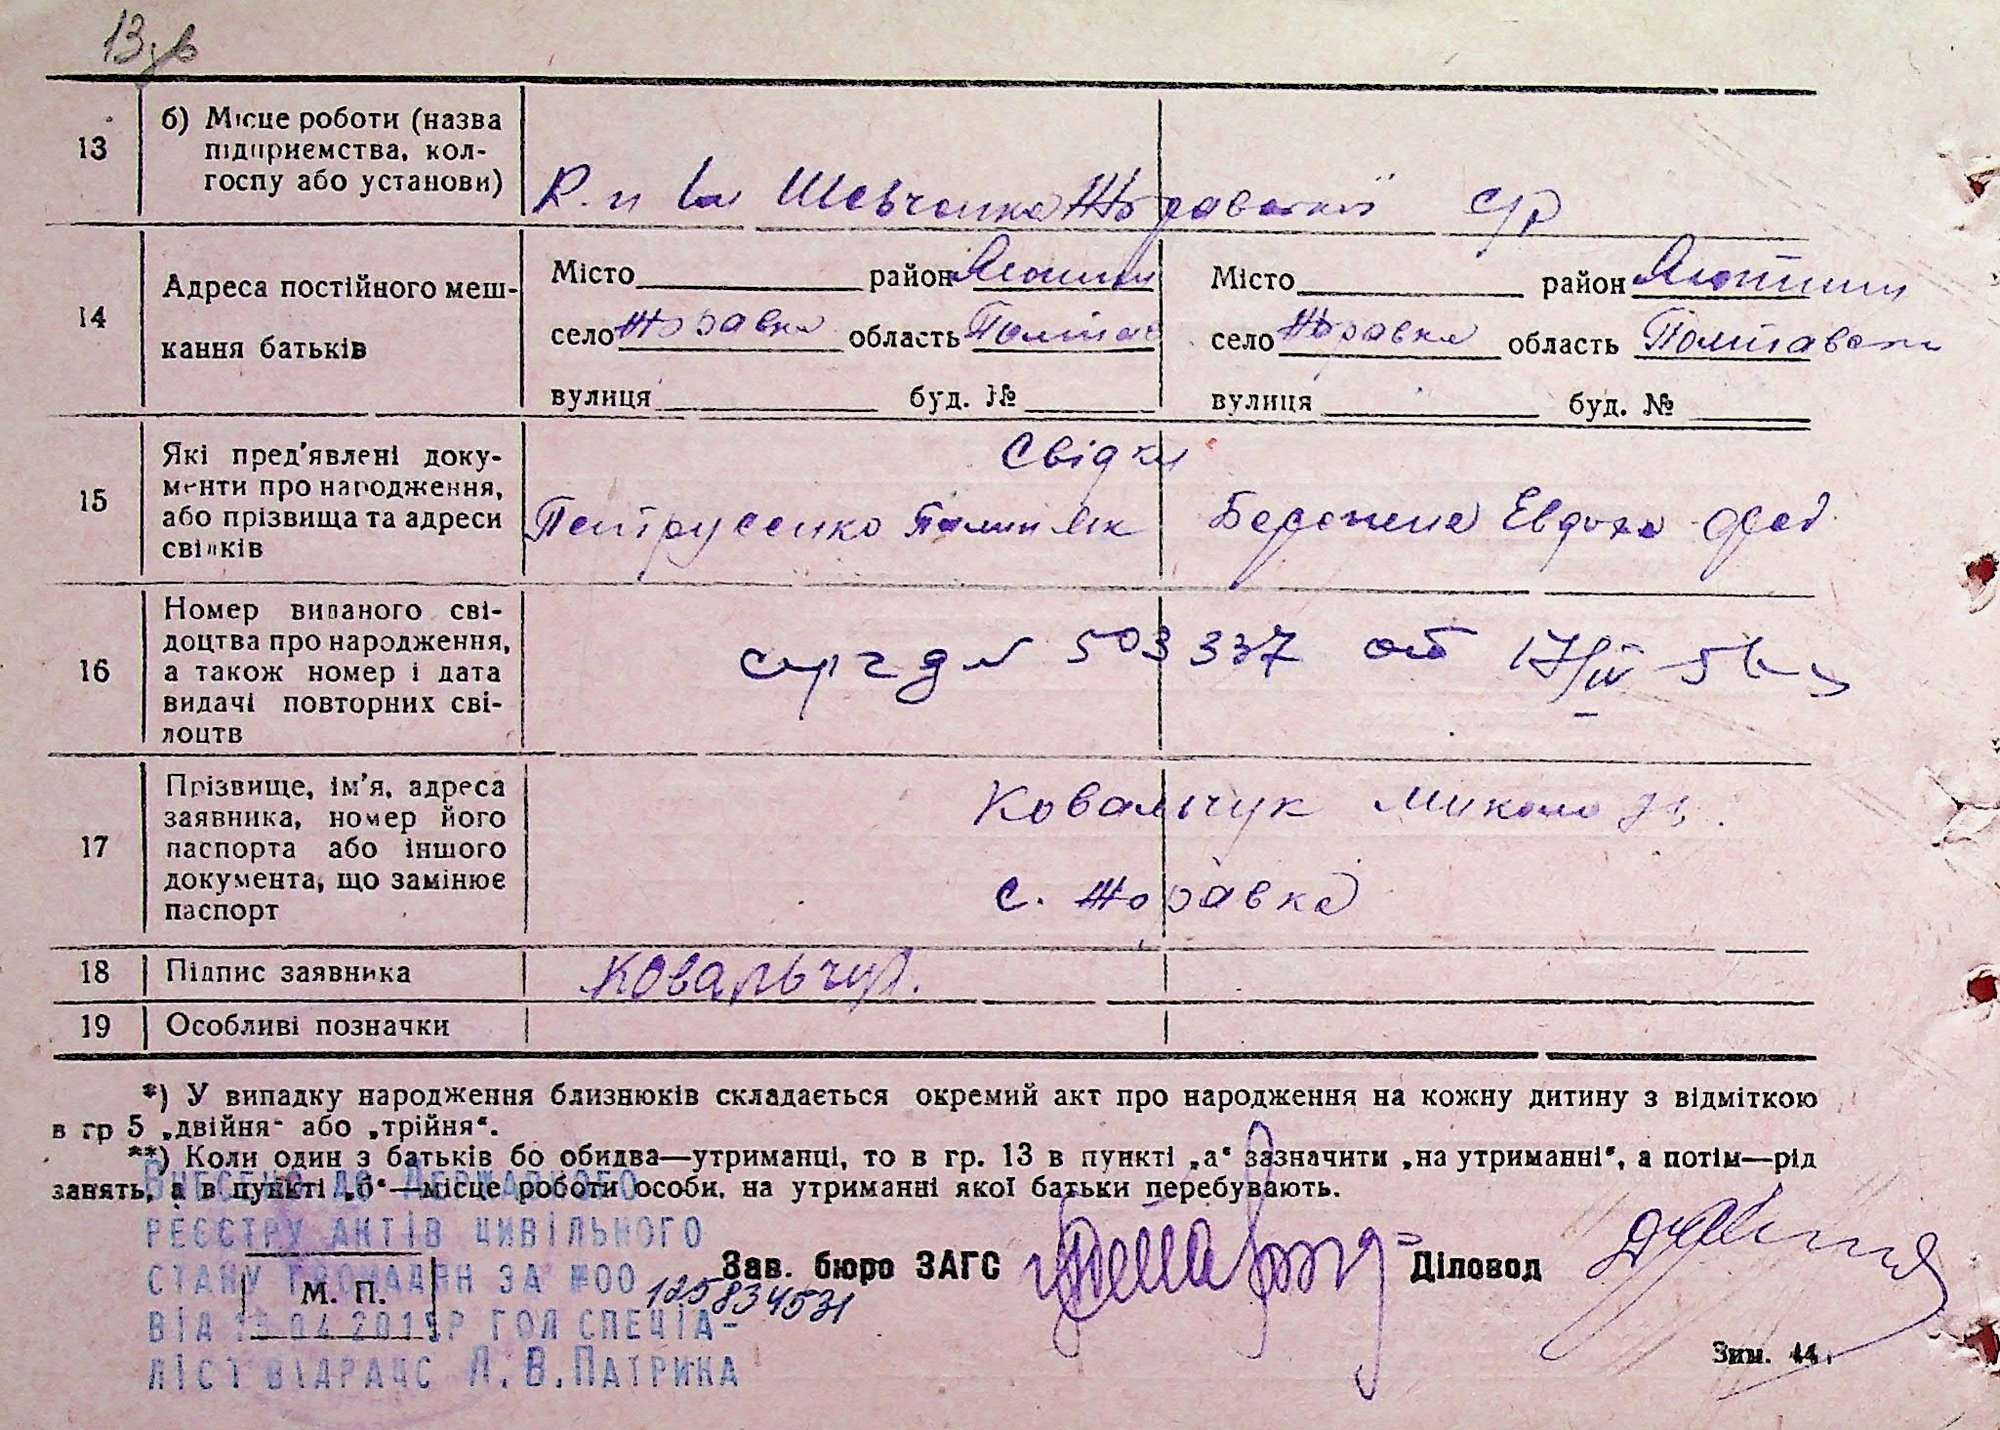 13 зв
13
б) Місце роботи (назва
підприємства, кол-
госпу або установи)
К-п ім Шевченка Жоравської с/р
14
Адреса постійного меш-
кання батьків
Місто район Яготин
село Жоравка область Полтав
вулиця буд. №
Місто район Яготинськ
село Жоравка область Полтавськ
вулиця буд. №
15
Які пред'явлені доку-
менти про народження,
або прізвища та адреси
свідків
Свідки
Петрусенко
Евдоха Фед
16
Номер виданого сві-
доцтва про народження,
а також номер і дата
видачі повторних сві-
доцтв
№ 503337 от 17/IV
17
Прізвище, ім'я, адреса
заявника, номер його
паспорта або іншого
документа, що замінює
паспорт
Ковальчук Микола
с. Жоравка
18 Підпис заявника
Ковальчук.
19 Особливі позначки
*) У випадку народження близнюків складається окремий акт про народження на кожну дитину з відміткою
в гр 5 „двійня“ або „трійня“.
**) Коли один з батьків бо обидва—утриманці, то в гр. 13 в пункті „а“ зазначити „на утриманні“, а потім—рід
занять, а в пункті „б“—місце роботи особи, на утриманні якої батьки перебувають.
ВНЕСЕНО ДО ДЕРЖАВНОГО
РЕЄСТРУ АКТІВ ЦИВІЛЬНОГО
СТАНУ ГРОМАДЯН ЗА №00 125834531
ВІД 04 2019Р ГОЛ СПЕЦІА-
ЛІСТ ВІДРАЦС Л.В.ПАТРИКА
М. П.
Зав. бюро ЗАГС
Діловод
Зим. 44